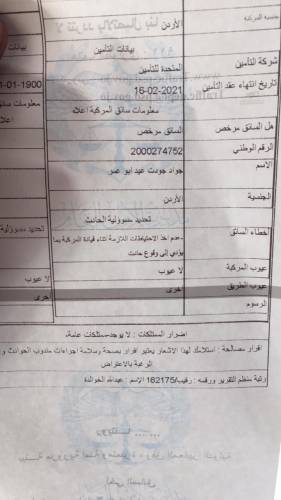 جنسية المركبة
الأردن
بيانات
بيانات التأمين
شركة التأمين
المتحدة للتأمين
تاريخ انتهاء عقد التأمين
16-02-2021
01-01-1900
معلومات سائق المركبة اعلاه
معلومات سائق
اعلاه
هل السائق مرخص
السائق مرخص
الرقم الوطني
2000274752
الاسم
جواد جودت عيد ابو عمر
الجنسية
الأردن
تحديد مسؤولية الحادث
تحديد مسؤولية
اخطاء السائق
عدم اخذ الاحتياطات اللازمة اثناء قيادة المركبة بما
يؤدي إلى وقوع حادث
عيوب المركبة
لا عيوب
لا عيوب
عيوب الطريق
اخرى
اخرى
الرسوم
اضرار الممتلكات : لا يوجد-ممتلكات عامة:
اقرار مصالحة : استلامك لهذا الاشعار يعتبر اقرار بصحة وسلامة اجراءات مندوب الحوادث و
الرغبة بالاعتراض
رتبة منظم التقرير ورقمه : رقيب/162175 الاسم : عبدالله الخوالدة